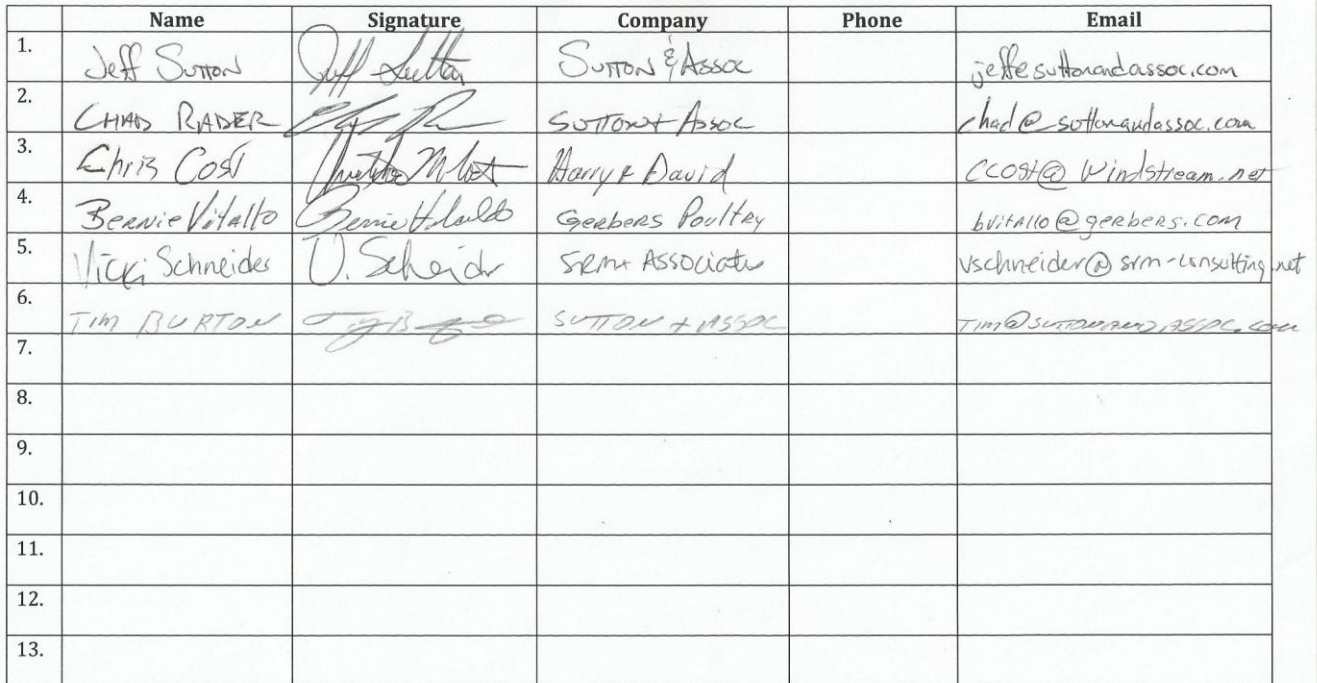 Name Signature Company Phone Email
1. Jeff Sutton Jeff Sutton Sutton & Assoc jeff@suttonandassoc.com
2. CHAD RADER Sutton + Assoc chad@suttonandassoc.com
3. Chris Cost Harry & David ccost@windstream.net
4. Bernie Vitallo Gerbers Poultry bvitallo@gerbers.com
5. Vicki Schneider V. Schneider SRM + Associates vschneider@srm-consulting.net
6. TIM BURTON SUTTON + ASSOC TIM@SUTTONANDASSOC.COM
7.
8.
9.
10.
11.
12.
13.